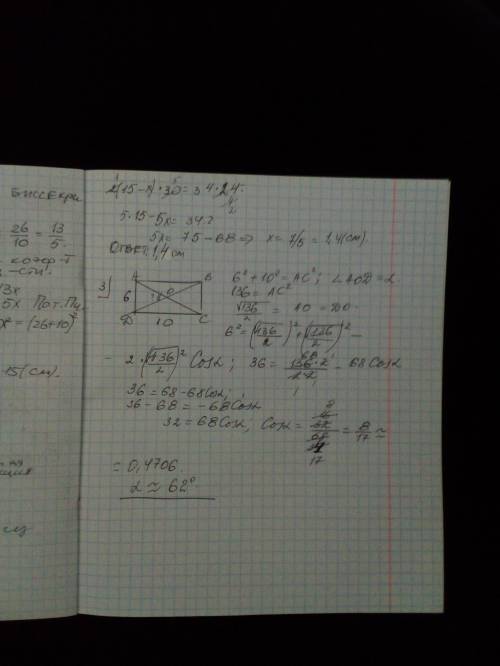 биссектри
26/10 = 13/5
13x
5x По т. Пи
x² = (26+10)²
15 (см).
2(15-x)·30 = 34·24
5·15-5x = 34·2
5x = 75-68 => x = 7/5 = 1,4(см).
Ответ: 1,4 см
3) A B
6 O
D 10 C
6²+10² = AC²; ∠AOD = α
136 = AC²
√136/2 = AO = DO
6² = (√136/2)² + (√136/2)² -
- 2·(√136/2)² Cosα; 36 = 136·2/2·2 - 68Cosα
36 = 68-68Cosα;
36-68 = -68Cosα
32 = 68Cosα, Cosα = 32/68 = 8/17 ≈
≈ 0,4706.
α ≈ 62°